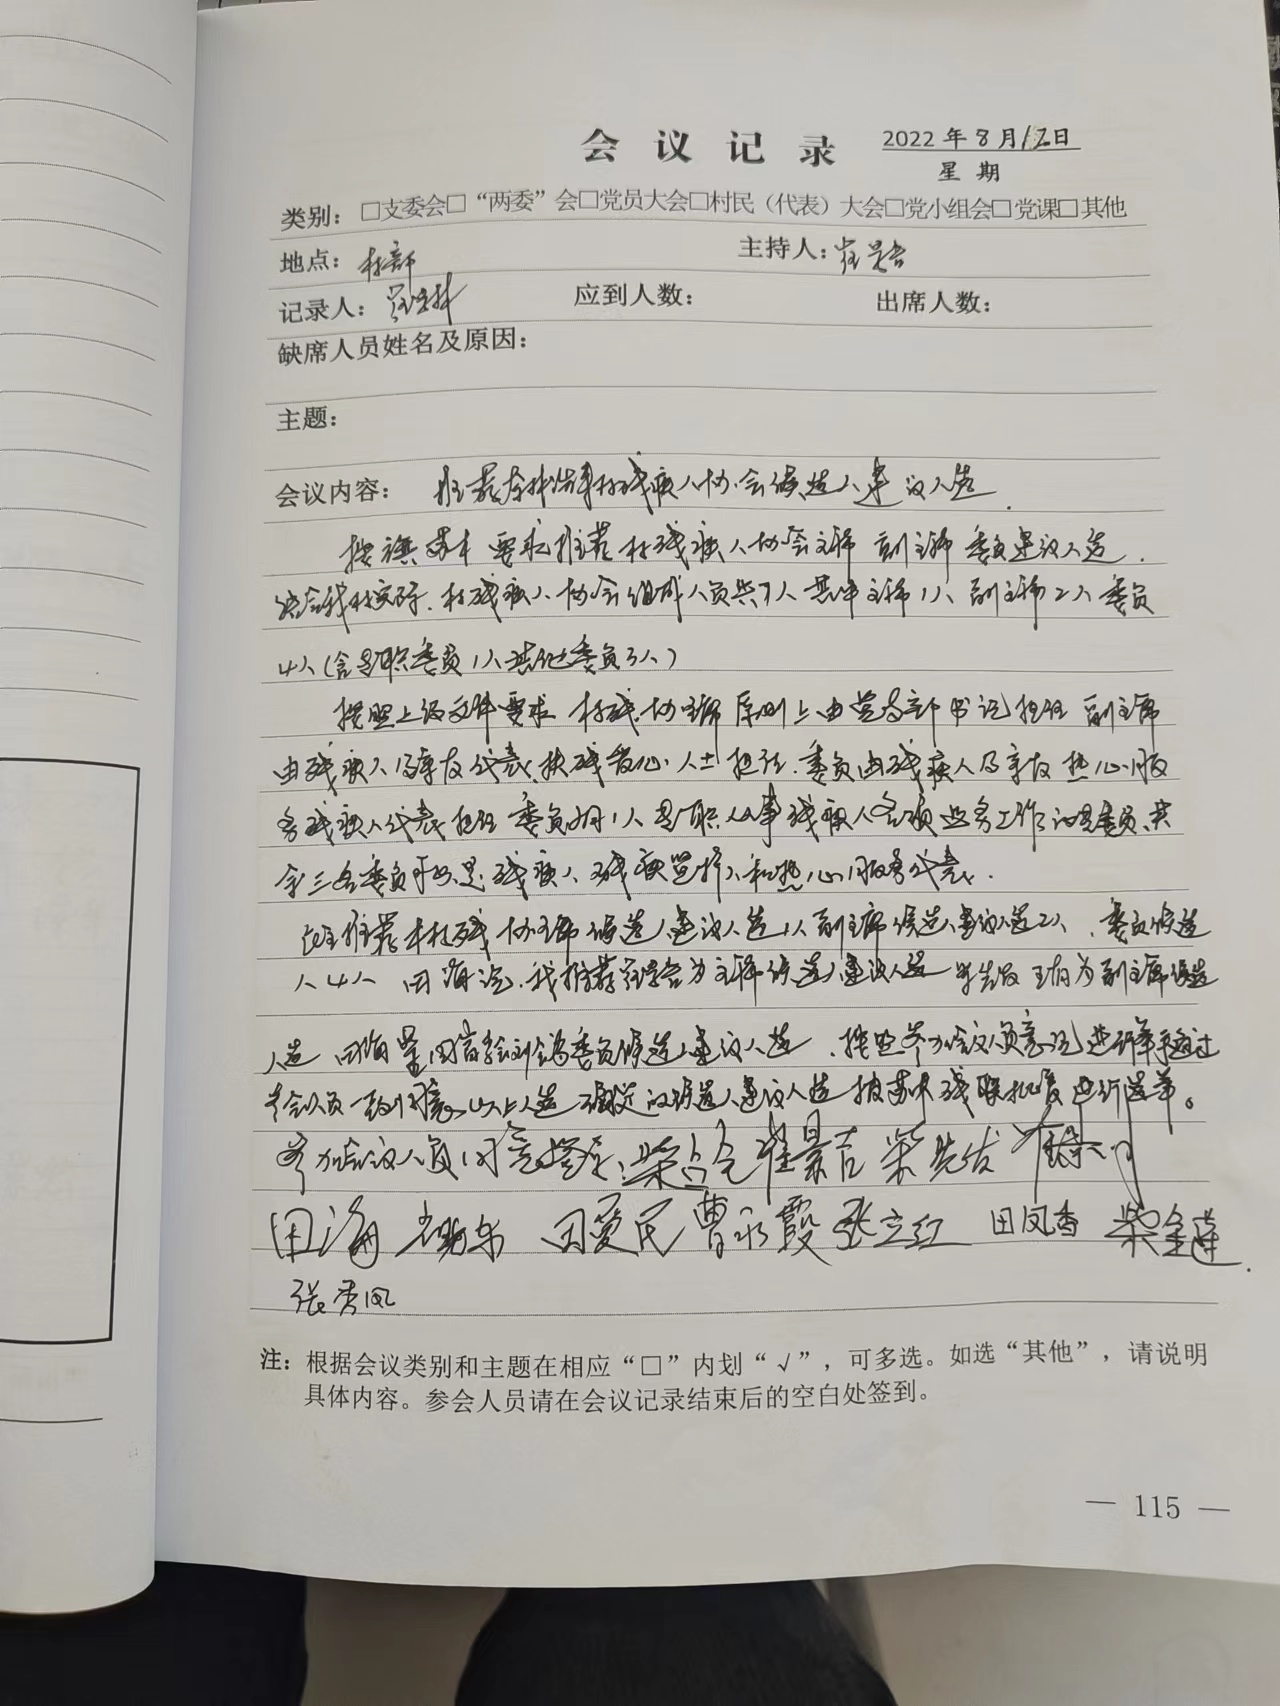 会议记录 2022年8月12日
星期
类别：□支委会□“两委”会□党员大会□村民（代表）大会□党小组会□党课□其他
地点：村部 主持人：崔景吉
记录人： 应到人数： 出席人数：
缺席人员姓名及原因：
主题：
会议内容：推荐 村残疾人协会候选人建议人选.
按旗 要求推荐村残疾人协会主席 副主席 委员建议人选.
结合我村实际.村残疾人协会组成人员共7人 其中主席1人 副主席2人 委员
4人(含专职委员1人其他委员3人)
按照上级文件要求 村残协主席原则上由党支部书记担任 副主席
由残疾人及亲友代表、扶残爱心人士担任.委员由残疾人及亲友热心服
务残疾人代表担任 委员 1人专职从事残疾人各项业务工作 委员、其
余三名委员可以是残疾人、残疾监护人和热心服务代表.
推荐本村残协主席候选人建议人选1人副主席候选人建议人选2人、委员候选
人4人 田海说.我推荐 为主席候选人建议人选 为副主席候选
人选 田海 委员候选人建议人选.按照参加会议人员意见进行举手通过
参会人员一致同意以上人选 确定的候选人建议人选 残联批复进行选举。
参加会议人员同意签字：柴占仓 崔景吉 柴先发
田海 田爱民 曹永霞 张立红 田凤香 柴金莲.
张秀凤
注：根据会议类别和主题在相应“□”内划“√”，可多选。如选“其他”，请说明
具体内容。参会人员请在会议记录结束后的空白处签到。
— 115 —